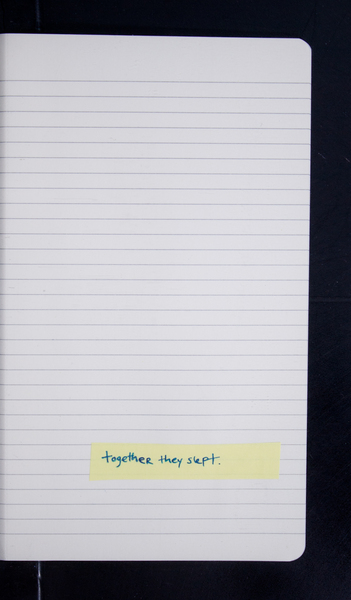 together they slept.